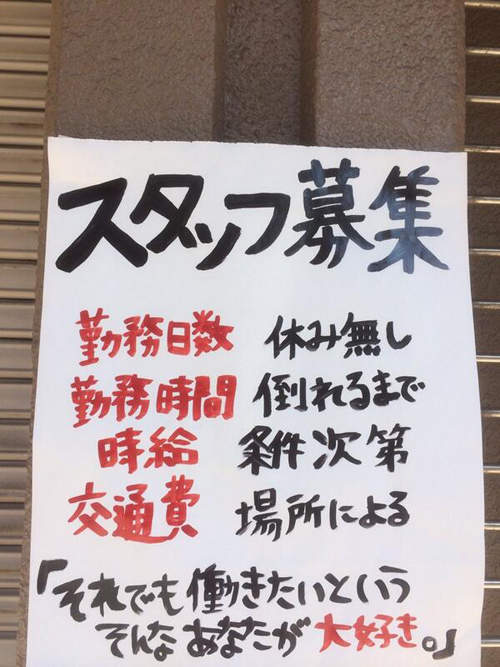 スタッフ募集
勤務日数 休み無し
勤務時間 倒れるまで
時給 条件次第
交通費 場所による
「それでも働きたいという
そんなあなたが大好き。」